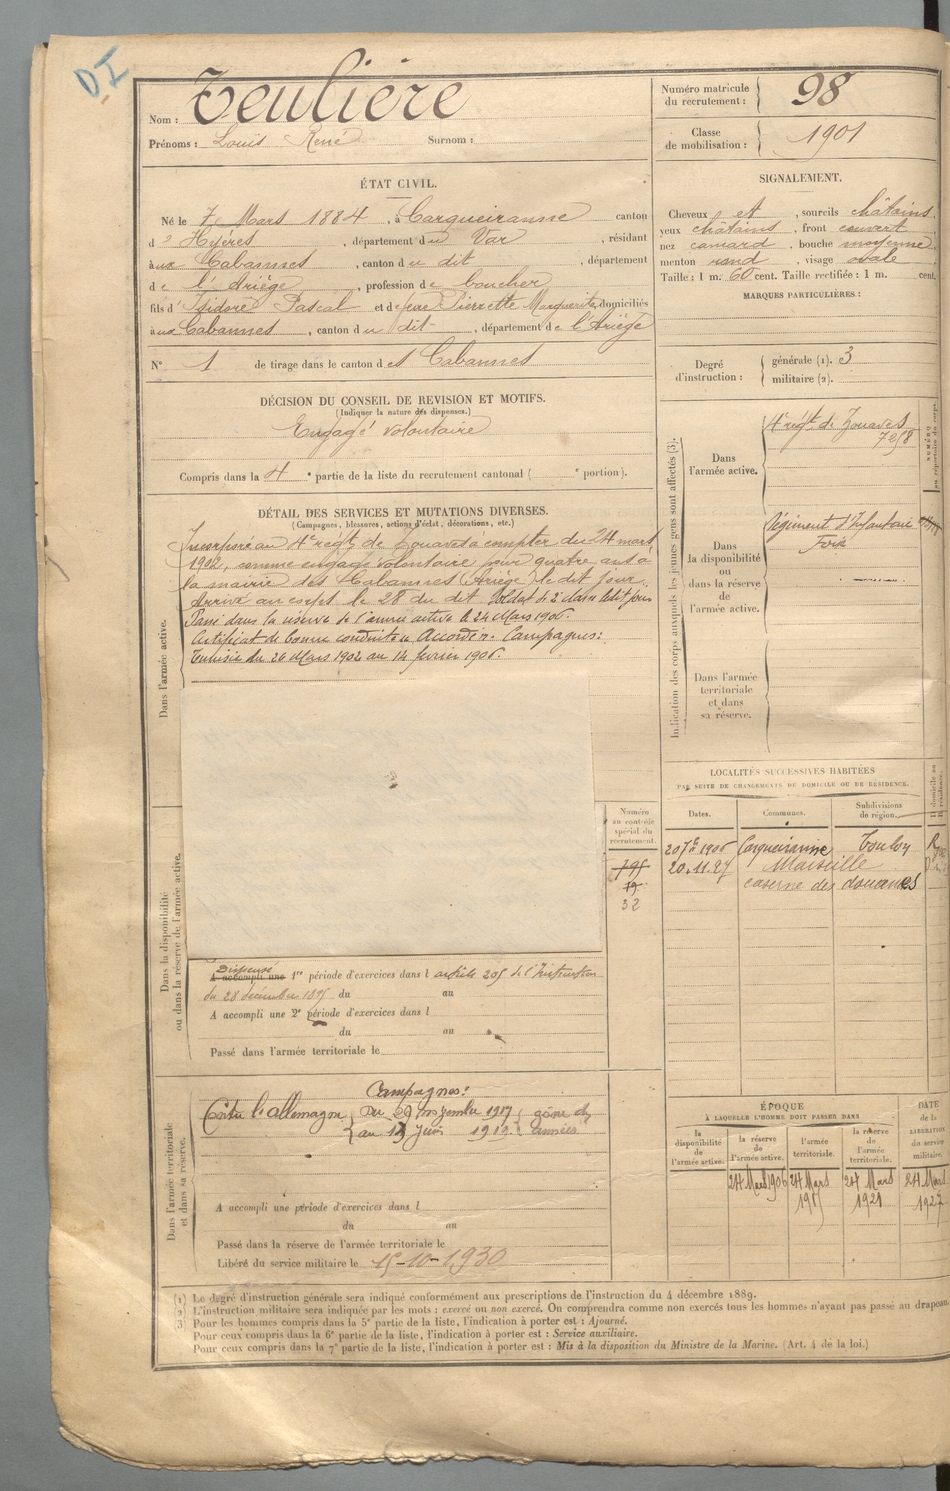 DI
Nom : Teulière
Prénoms : Louis René Surnom :
ÉTAT CIVIL.
Né le 7 Mars 1884, à Carqueiranne canton
d' Hyères, département du Var, résidant
aux Cabannes, canton du dit, département
de l'Ariège, profession de boucher
fils d'Isidore Pascal et de Pierrette Marguerite, domiciliés
aux Cabannes, canton du dit, département de l'Ariège
N° 1 de tirage dans le canton des Cabannes
DÉCISION DU CONSEIL DE REVISION ET MOTIFS.
(Indiquer la nature des dispenses.)
Engagé volontaire
Compris dans la 4e partie de la liste du recrutement cantonal ( e portion).
DÉTAIL DES SERVICES ET MUTATIONS DIVERSES.
(Campagnes, blessures, actions d'éclat, décorations, etc.)
Dans l'armée active.
Incorporé au 4e régt de Zouaves à compter du 24 mars
1902, comme engagé volontaire pour quatre ans à
la mairie des Cabannes (Ariège) le dit jour.
Arrivé au corps le 28 du dit Soldat de 2e classe ledit jour
Passé dans la réserve de l'armée active le 24 Mars 1906.
Certificat de bonne conduite "Accordé". Campagnes:
Tunisie du 26 Mars 1902 au 14 février 1906.
Dans la disponibilité
ou dans la réserve de l'armée active.
Numéro
au contrôle
spécial du
recrutement.
795
19
32
Dispensé
A accompli une 1re période d'exercices dans l article 205 de l'Instruction
du 28 décembre 1895 du au
A accompli une 2e période d'exercices dans l
du au
Passé dans l'armée territoriale le
Dans l'armée territoriale
et dans sa réserve.
Campagnes:
Contre l'allemagne du 29 novembre 1917 zône des
au 12 Juin 1919. armées
A accompli une période d'exercices dans l
du au
Passé dans la réserve de l'armée territoriale le
Libéré du service militaire le 15-10-1930
Numéro matricule
du recrutement : 98
Classe
de mobilisation : 1901
SIGNALEMENT.
Cheveux et, sourcils châtains,
yeux châtains, front couvert
nez camard, bouche moyenne,
menton rond, visage ovale.
Taille : 1 m. 60 cent. Taille rectifiée : 1 m. cent.
MARQUES PARTICULIÈRES :
Degré
d'instruction :
générale (1). 3
militaire (2).
Indication des corps auxquels les jeunes gens sont affectés (3).
NUMÉRO
au répertoire du corps.
Dans
l'armée active.
4e régt de Zouaves
7258
Dans
la disponibilité
ou
dans la réserve
de
l'armée active.
Régiment d'Infanterie
Foix
Dans l'armée
territoriale
et dans
sa réserve.
LOCALITÉS SUCCESSIVES HABITÉES
PAR SUITE DE CHANGEMENTS DE DOMICILE OU DE RÉSIDENCE.
Dates. Communes. Subdivisions
de région.
20 7bre 1906 Carqueiranne Toulon
20.11.27 Marseille
caserne des douanes
ÉPOQUE
À LAQUELLE L'HOMME DOIT PASSER DANS
DATE
de la
LIBÉRATION
du service
militaire.
la
disponibilité
de
l'armée active.
la réserve
de
l'armée active.
l'armée
territoriale.
la réserve
de
l'armée
territoriale.
24 Mars 1906 24 Mars 24 Mars 24 Mars
1921 1927
(1) Le degré d'instruction générale sera indiqué conformément aux prescriptions de l'instruction du 4 décembre 1889.
(2) L'instruction militaire sera indiquée par les mots : exercé ou non exercé. On comprendra comme non exercés tous les hommes n'ayant pas passé au drapeau
(3) Pour les hommes compris dans la 5e partie de la liste, l'indication à porter est : Ajourné.
Pour ceux compris dans la 6e partie de la liste, l'indication à porter est : Service auxiliaire.
Pour ceux compris dans la 7e partie de la liste, l'indication à porter est : Mis à la disposition du Ministre de la Marine. (Art. 4 de la loi.)